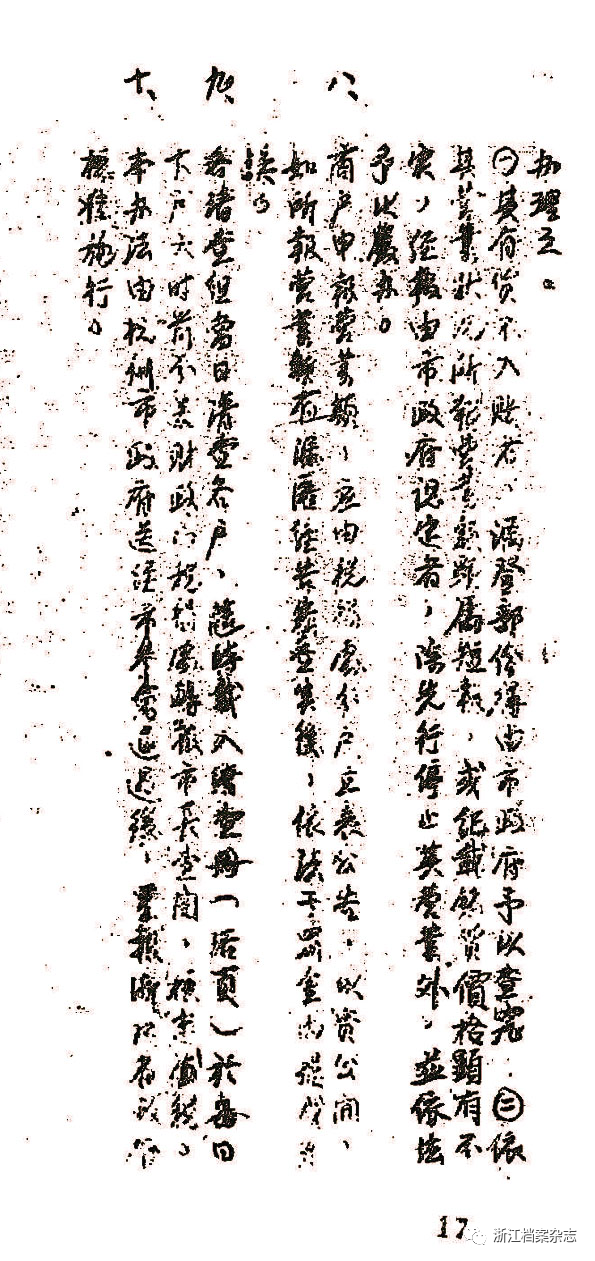 办理之。
㊀其有货不入账者，漏登部份得由市政府予以查究 ㊁依
其营业状况所报营业额显属短报，或纪载销货價格顯有不
实，经报由市政府认定者，除先行停止其营业外，並依法
予以严办。
八、商户申报营业额，应由税 处分户立表公告，以资公开，
如所报营业额有漏匿经告 查实后，依法
九、各 查组当日 查各户，随时载入 查册（活页）於每日
下 六时前分 财政 税 处转报市长查阅， 税。
十、本办法由杭州市政府送经市参 会通过后，呈报浙江省政府
核准施行。
17
浙江档案杂志